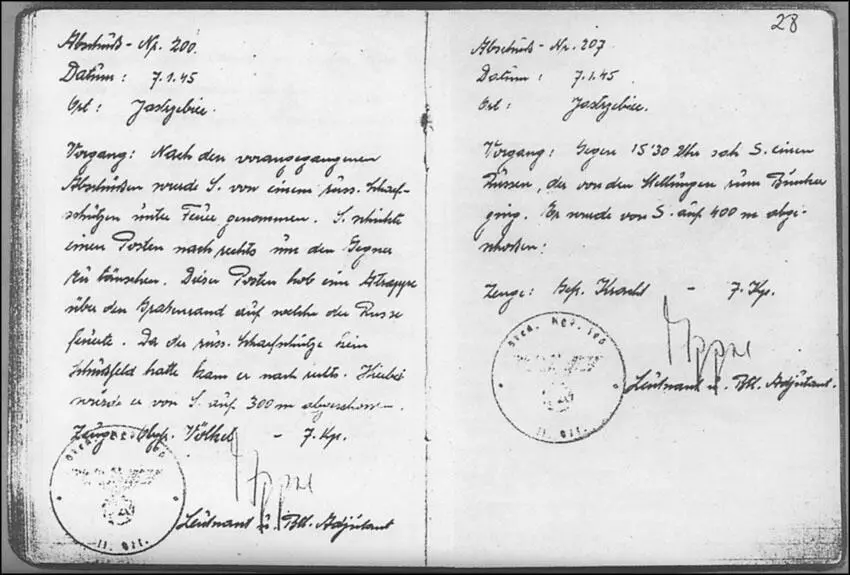 Abschuß - Nr. 200.
Datum : 7.1.45
Ort : Jastzebice.
Vorgang : Nach den vorangegangenen
Abschüßen wurde S. von einem russ. Scharf-
schützen unter Feuer genommen. S. schickte
einen Posten nach rechts um den Gegner
zu täuschen. Dieser Posten hob eine Atrappe
über den Grabenrand auf welche der Russe
feuerte. Da der russ. Scharfschütze kein
Schußfeld hatte kam er nach rechts. Hierbei
wurde er von S. auf 300 m abgeschossen.
Zeuge: Ogfr. Völkel - 7. Kp.
Leutnant u. Btl. Adjutant
28
Abschuß - Nr. 207
Datum : 7.1.45
Ort : Jastzebice.
Vorgang : Gegen 15'30 Uhr sah S. einen
Russen, der von den Stellungen zum Bunker
ging. Er wurde von S. auf 400 m abge-
schoßen.
Zeuge : Gefr. Kracht - 7. Kp.
Gren. Rgt.
II. Btl.
Leutnant u. Btl. Adjutant.